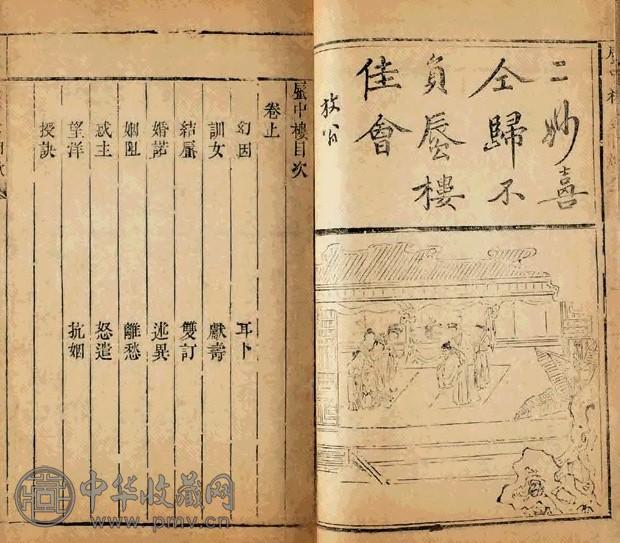 二妙喜
仝歸不
負蜃樓
佳會
蜃中樓目次
卷上
幻因 耳卜
訓女 獻壽
結蜃 雙訂
婚諾 述異
姻阻 離愁
惑主 怒遣
望洋 抗姻
授訣
中华收藏网
www.pmv.cn